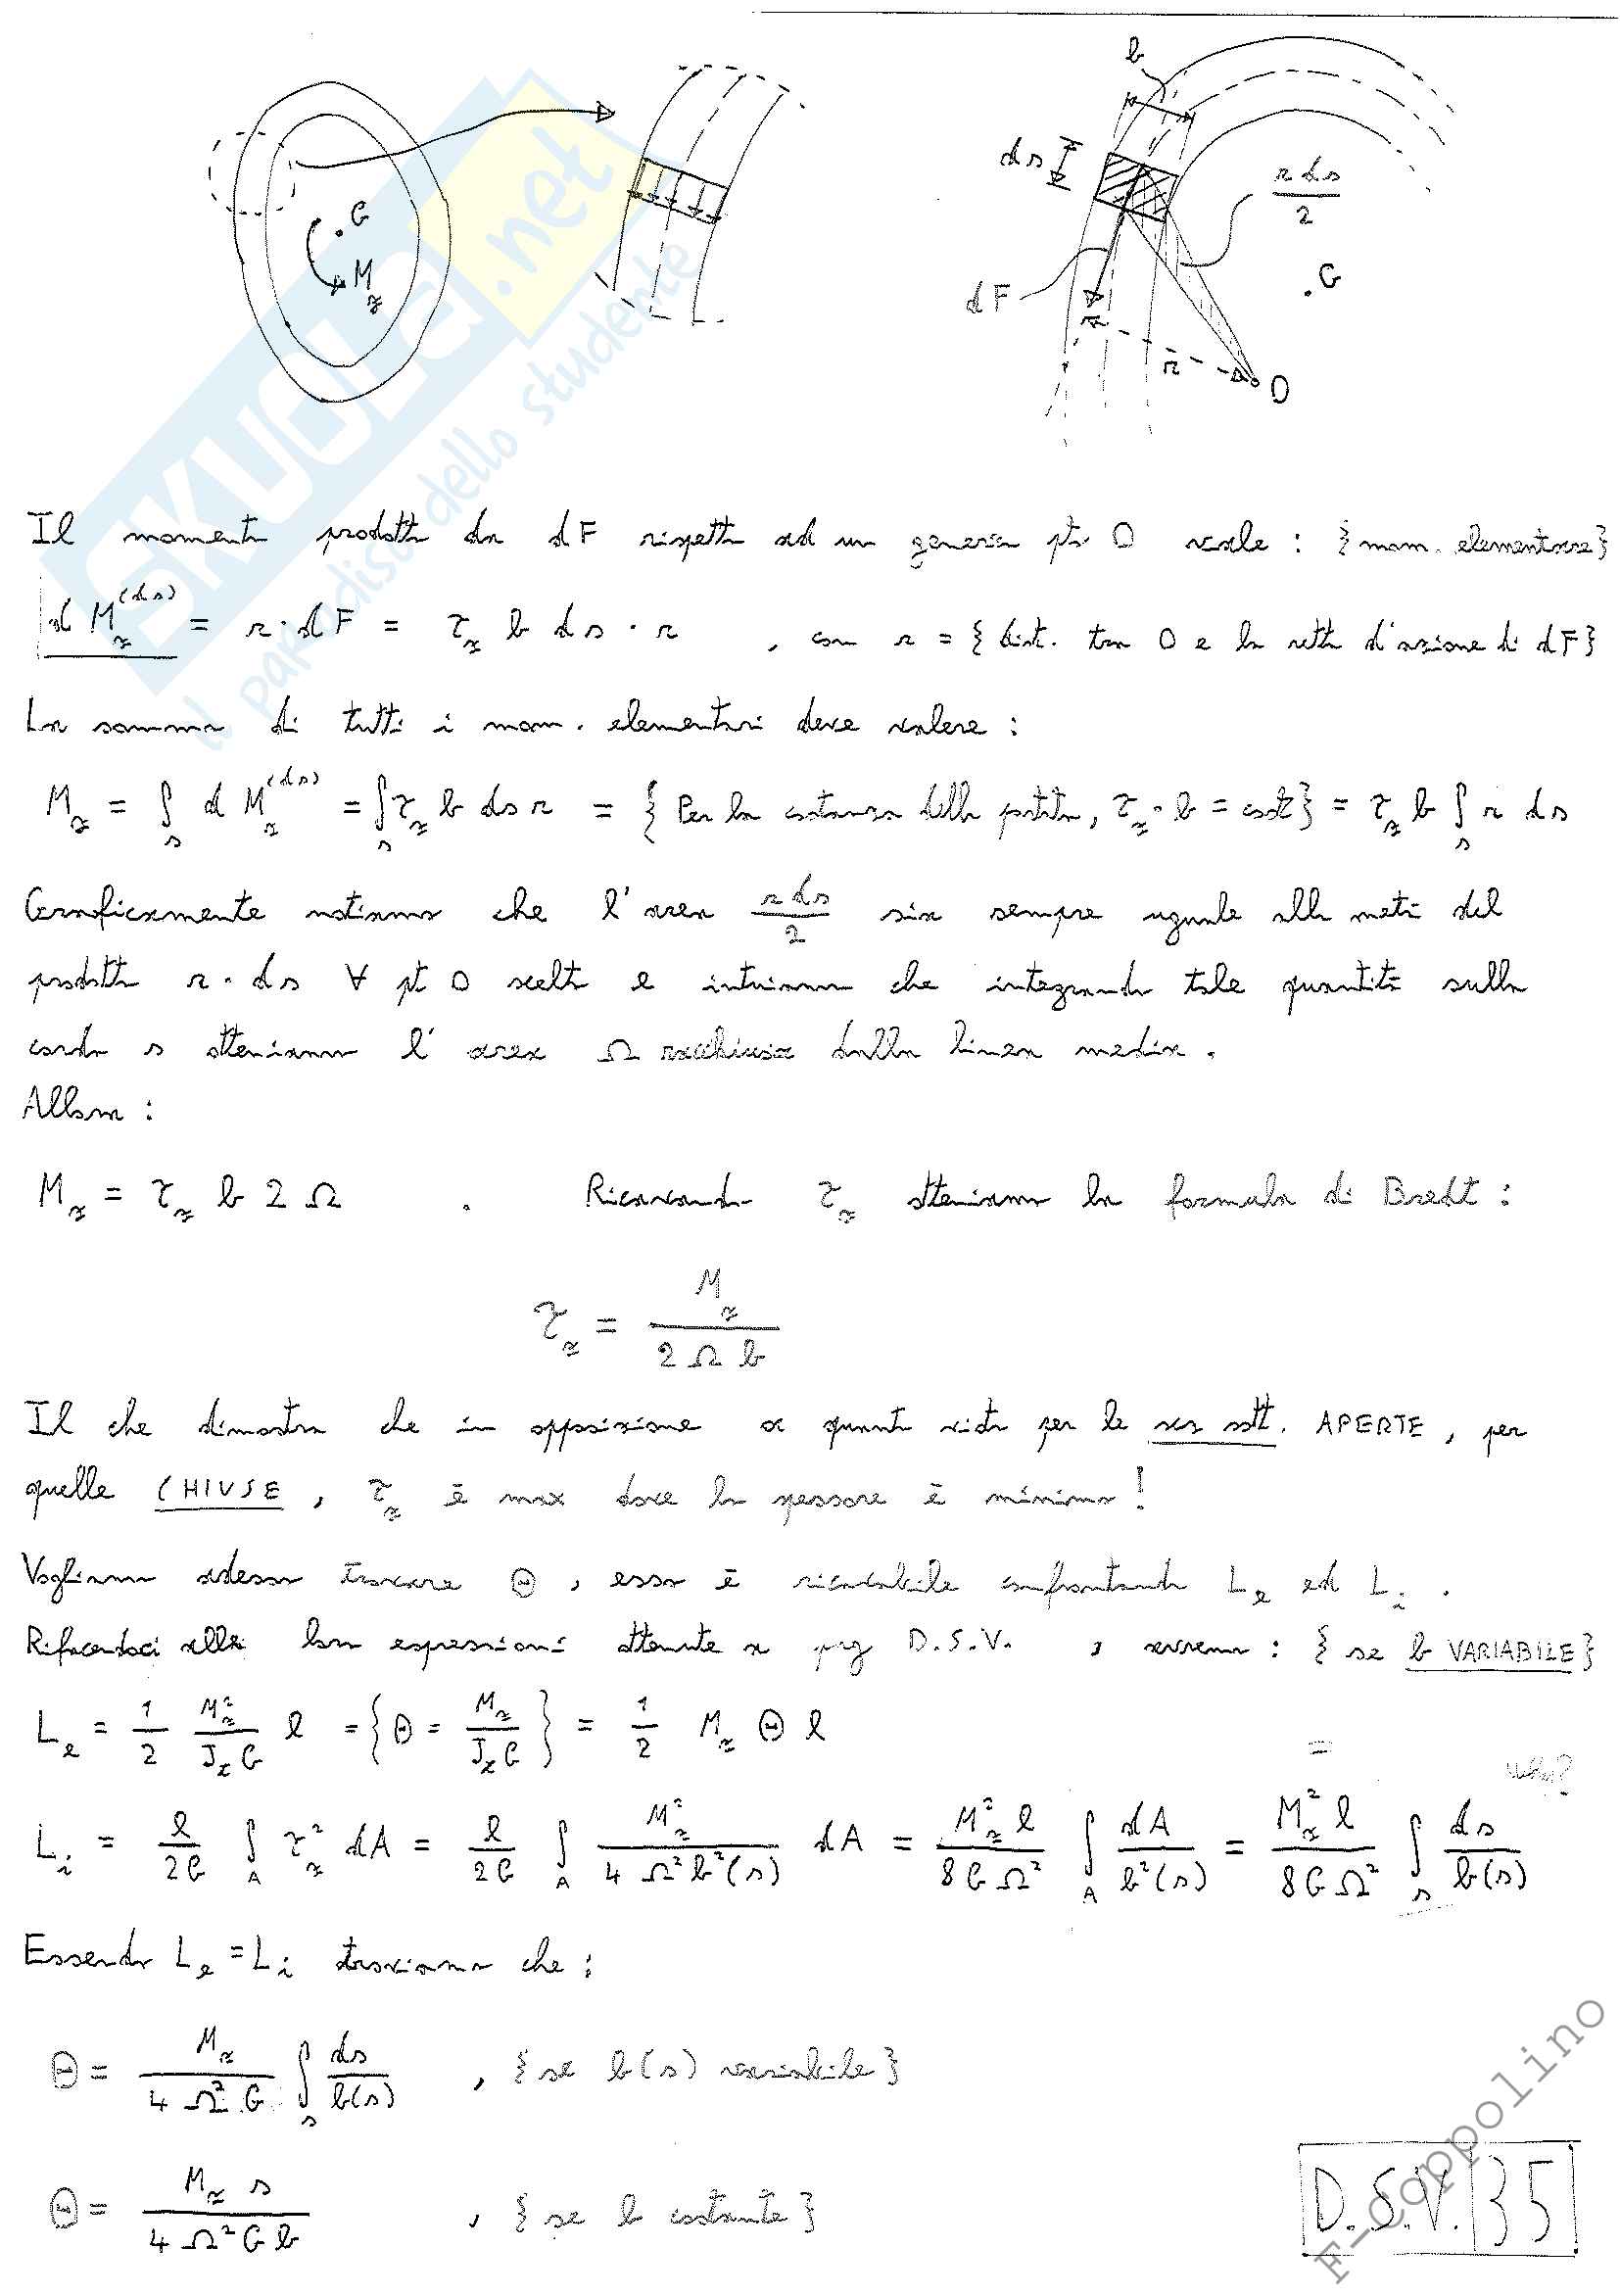 b
ds
r ds / 2
G
M_z
dF
r
O
G
SKUOLA.net
il paradiso dello studente
Il momento prodotto da dF rispetto ad un generico pto O vale : {mom. elementare}
dM_z^(ds) = r · dF = τ_z b ds · r , con r = {dist. tra O e la retta d'azione di dF}
La somma di tutti i mom. elementari deve valere :
M_z = ∫_s dM_z^(ds) = ∫_s τ_z b ds r = {Per la costanza della portata, τ_z · b = cost} = τ_z b ∫_s r ds
Graficamente notiamo che l'area r ds / 2 sia sempre uguale alla metà del
prodotto r · ds ∀ pt O scelto e intuiamo che integrando tale quantità sulla
corda s otteniamo l'area Ω racchiusa dalla linea media .
Allora :
M_z = τ_z b 2 Ω . Ricavando τ_z otteniamo la formula di Bredt :
τ_z = M_z / 2 Ω b
Il che dimostra che in opposizione a quanto visto per le sez sott. APERTE , per
quelle CHIUSE , τ_z è max dove lo spessore è minimo !
Vogliamo adesso trovare Θ , esso è ricavabile confrontando L_e ed L_i .
Rifacendoci alle loro espressioni ottenute a pag D.S.V. , avremo : {se b VARIABILE}
L_e = 1/2 M_z² / J_z G l = {Θ = M_z / J_z G} = 1/2 M_z Θ l
=
L_i = l / 2G ∫_A τ_z² dA = l / 2G ∫_A M_z² / 4 Ω² b²(s) dA = M_z² l / 8 G Ω² ∫_A dA / b²(s) = M_z² l / 8 G Ω² ∫_s ds / b(s)
Essendo L_e = L_i troviamo che :
Θ = M_z / 4 Ω² G ∫_s ds / b(s) , {se b(s) variabile}
Θ = M_z s / 4 Ω² G b , {se b costante}
D.S.V. 35
F-Coppolino